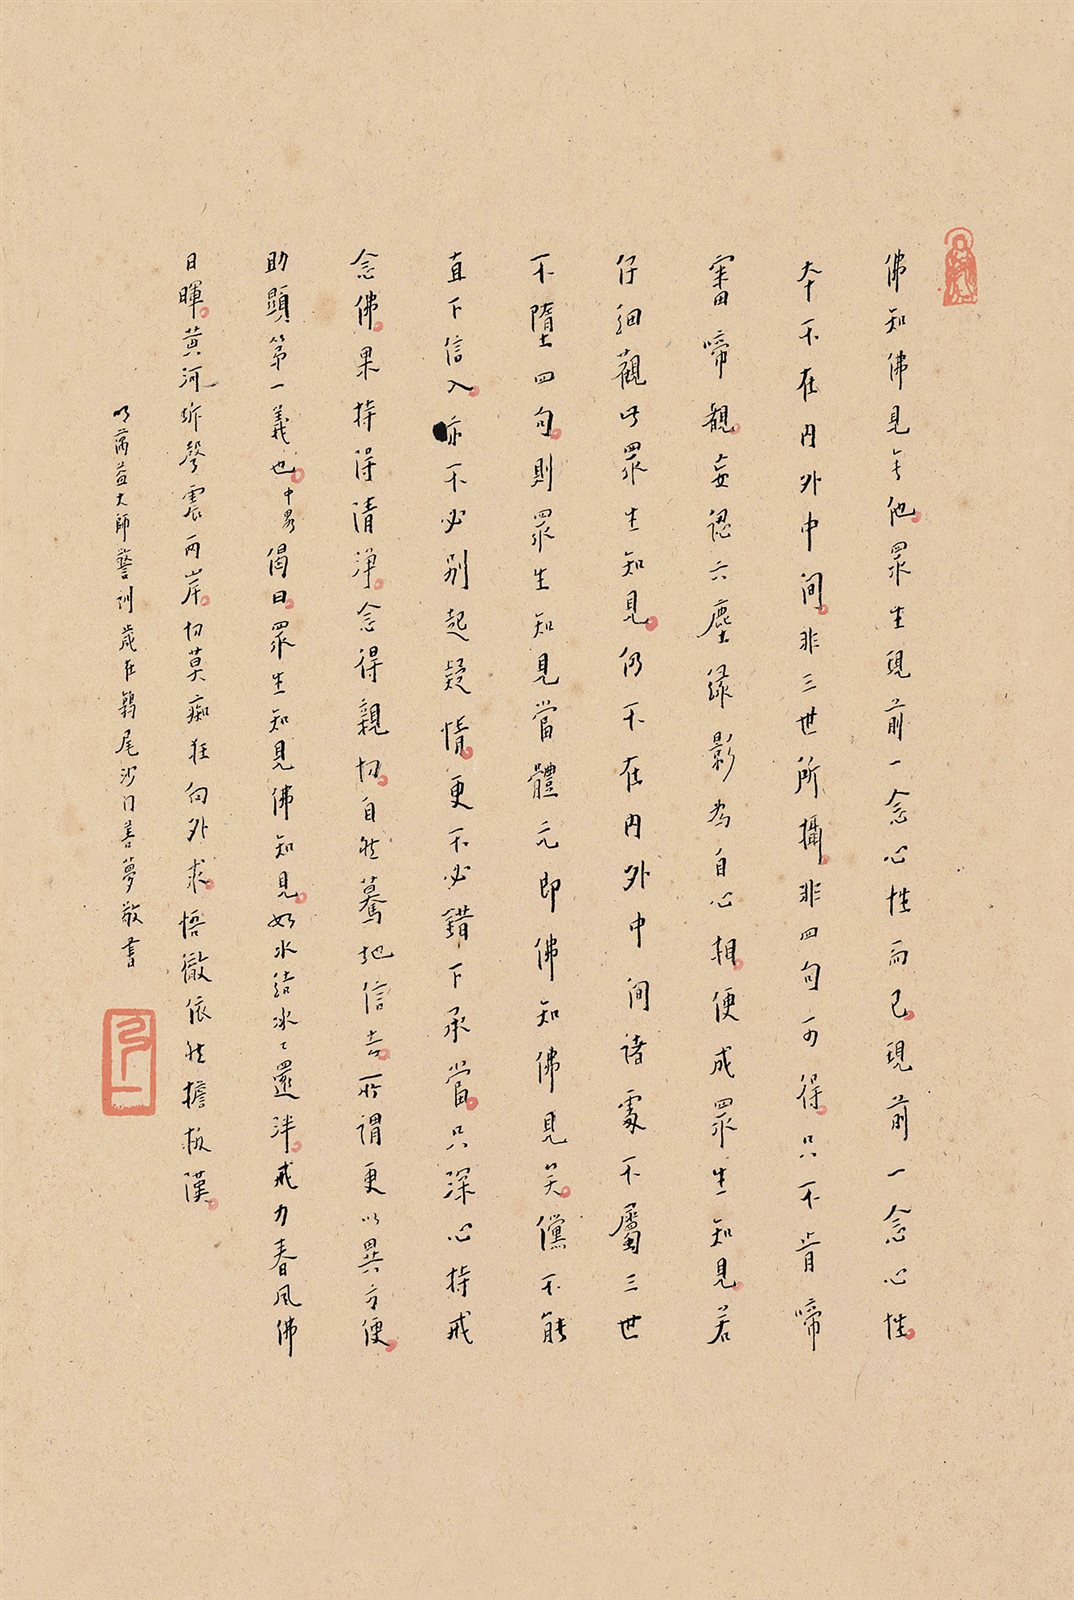 佛知佛見无他。眾生現前一念心性而已。現前一念心性。
本不在內外中间。非三世所攝。非四句可得。只不肯諦
審諦觀。妄認六塵緣影為自心相。便成眾生知見。若
仔細觀此眾生知見。仍不在內外中间諸處。不屬三世
不墮四句。則眾生知見當體元即佛知佛見矣。儻不能
直下信入。亦不必別起疑情。更不必錯下承當。只深心持戒
念佛。果持得清淨。念得親切。自然驀地信去。所謂更以異方便。
助顯第一義也。中畧 偈曰。眾生知見佛知見。如水結冰〻還泮。戒力春風佛
日暉。黃河坼聲震兩岸。切莫痴狂向外求。悟徹依然擔板漢。
明蕅益大師警訓 歲在鶉尾沙门善夢敬書